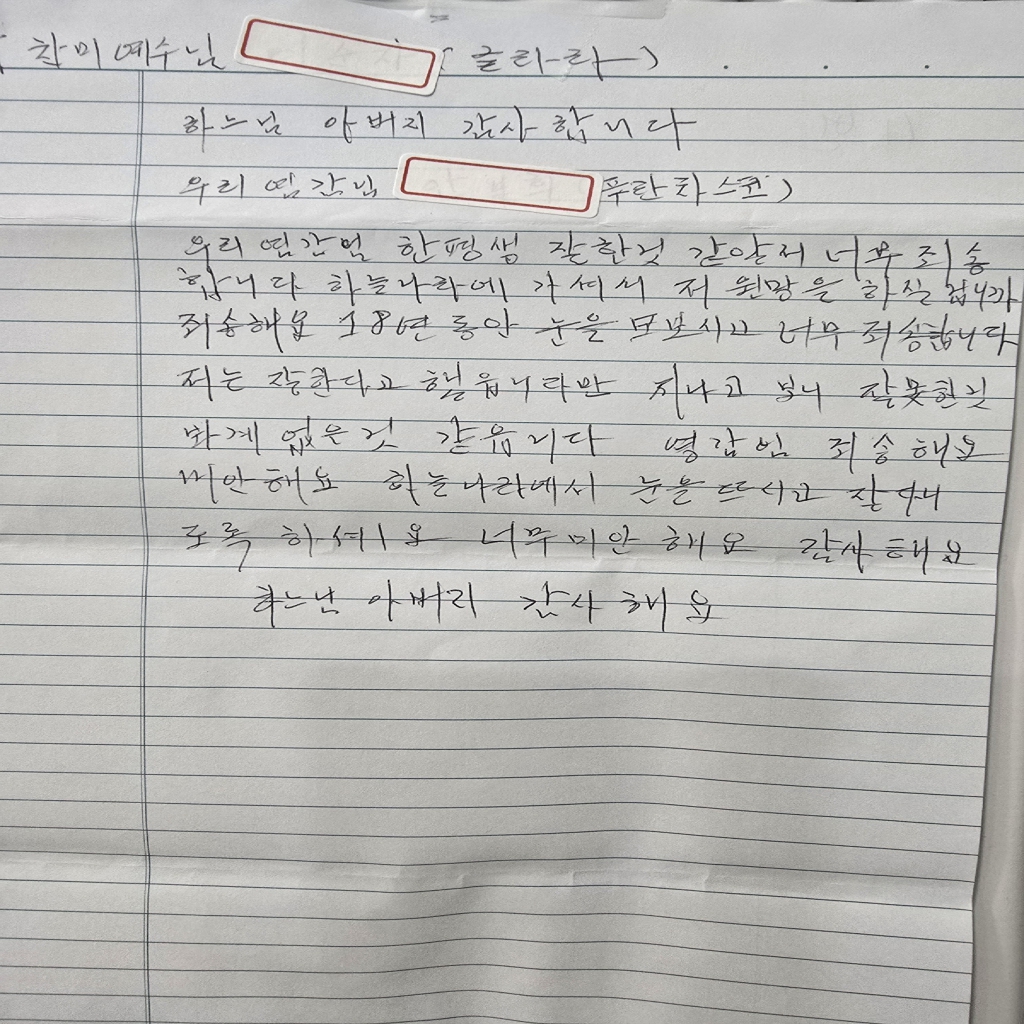 찬미예수님 (글라라)
하느님 아버지 감사합니다
우리 영감님 푸란치스코)
우리 영감님 한평생 잘한것 같안저 너무 죄송
합니다 하늘나라에 가셔서 저 원망을 하실 겁니까
죄송해요 18년 동안 눈을 모보시고 너무 죄송합니다
저는 잘한다고 했읍니다만 지나고 보니 잘못한것
바게 없은것 같읍니다 영감님 죄송해요
미안해요 하늘나라에서 눈을 뜨시고 잘
도록 하셔요 너무미안해요 감사해요
하느님 아버지 감사해요